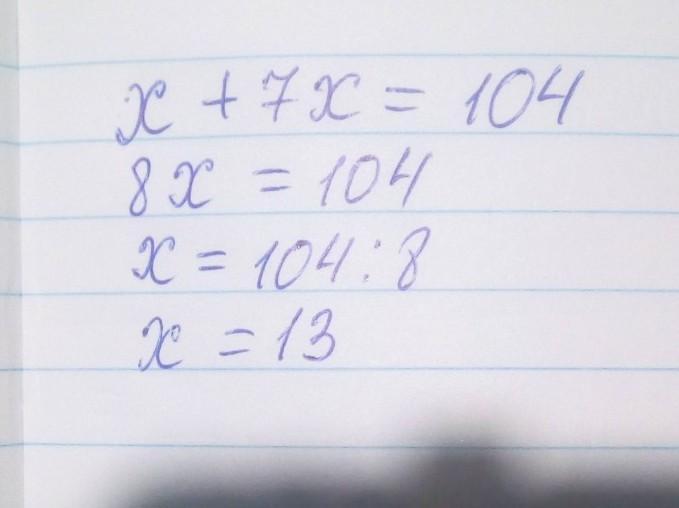 x + 7x = 104
8x = 104
x = 104 : 8
x = 13